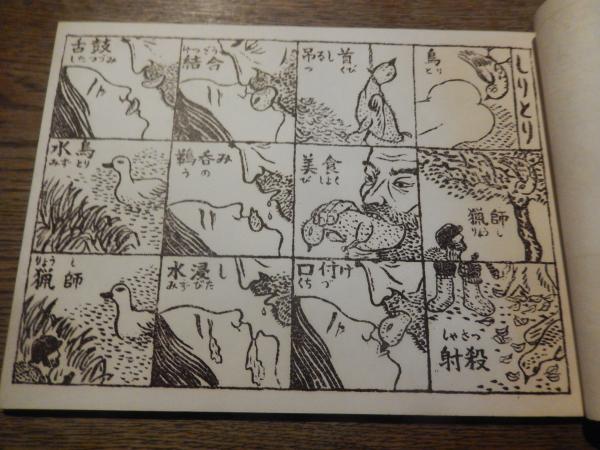 しりとり
鳥
とり
猟師
りょうし
しゃさつ
射殺
吊るし首
つ くび
美食
びしょく
口付け
くちづ
けつごう
結合
鵜呑み
うの
水浸し
みずびた
舌鼓
したつづみ
水鳥
みずとり
りょうし
猟師